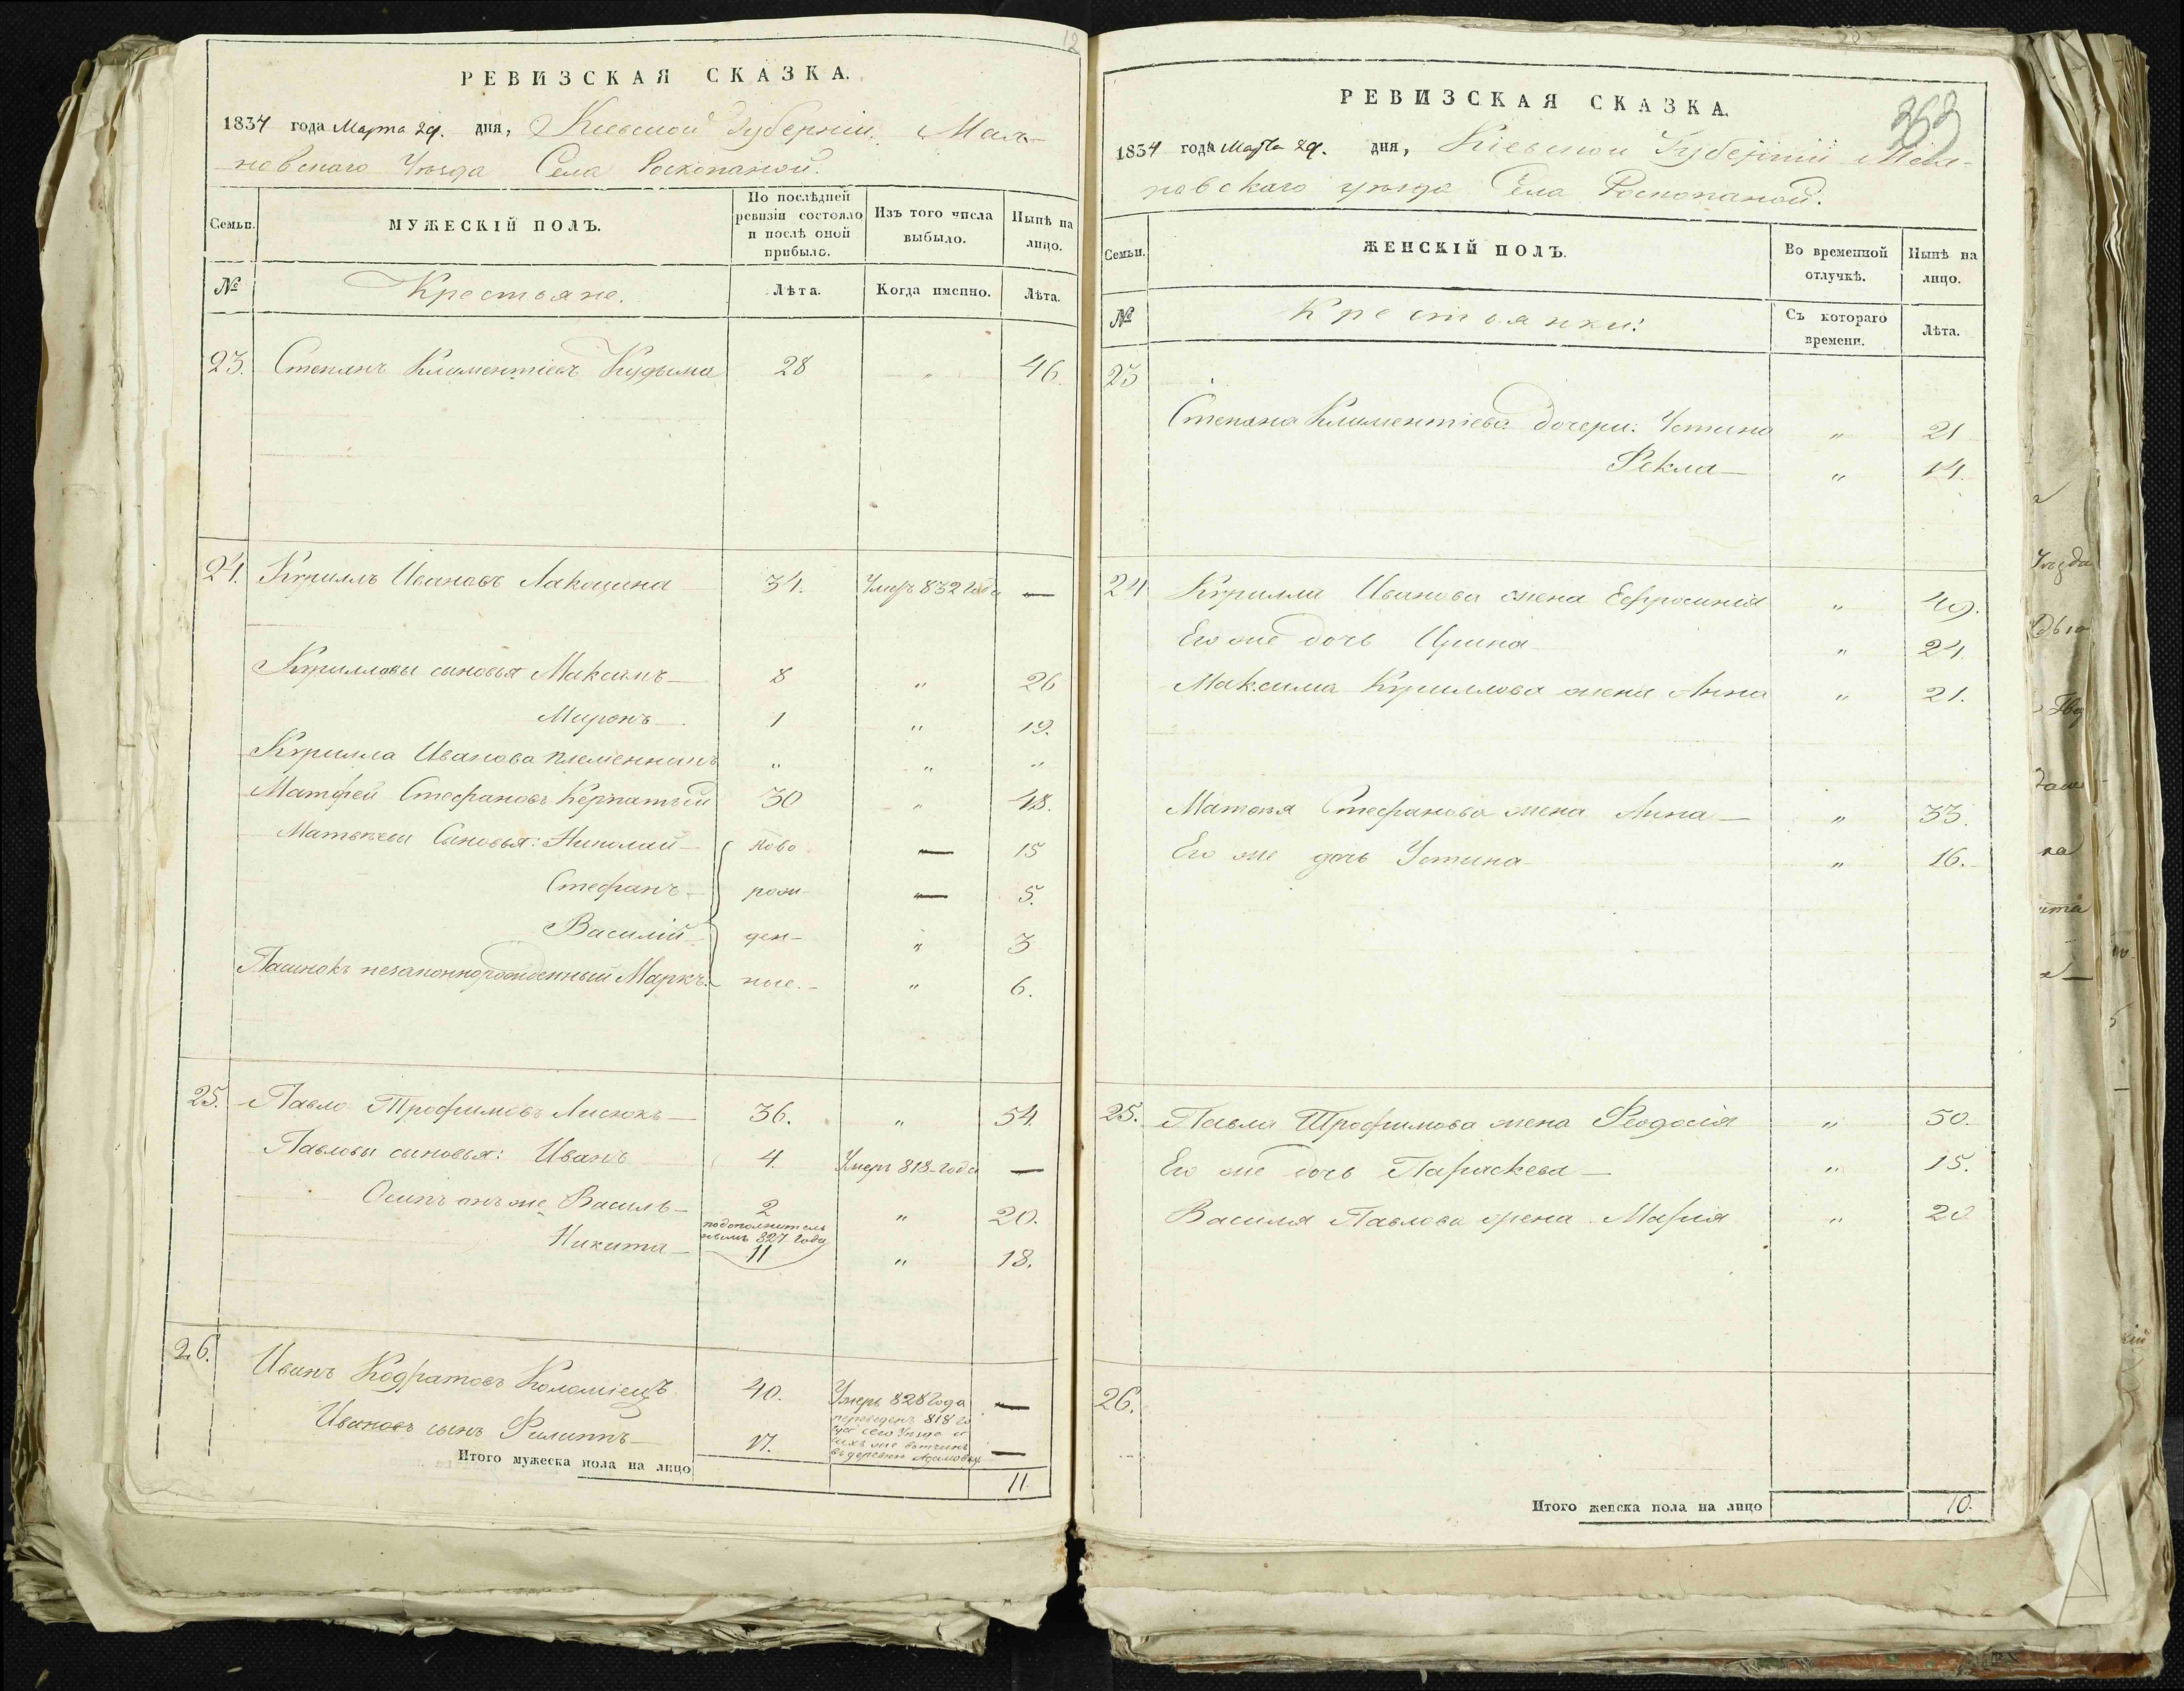 12
РЕВИЗСКАЯ СКАЗКА.
1834 года Марта 29. дня, Кіевской Губерніи Мал-
Уѣзда Села Роскопаной.
Семьи.
МУЖЕСКІЙ ПОЛЪ.
По послѣдней ревизіи состояло и послѣ оной прибыло.
Изъ того числа выбыло.
Нынѣ на лицо.
№
Крестьяне.
Лѣта.
Когда именно.
Лѣта.
23. Степанъ Климентіевъ Кудыма 28 " 46.
24. Кириллъ Ивановъ Лакощина 34. Умеръ 832 года —
Кирилловы сыновья Максимъ— 8 " 26
Миронъ—. 1 " 19.
Кирилла Иванова племенникъ " " "
Матфей Стефановъ 30 " 48.
Матвѣевы Сыновья: Николай— ново — 15
Стефанъ— рож- — 5.
Василій— ден- " 3
Пасинокъ незаконнорожденный Маркъ. ные.- " 6.
25. Павло Трофимовъ Лисюкъ— 36. " 54.
Павловы сыновья: Иванъ 4. Умеръ 818-года —
Осипъ онъ же Василь— 2 " 20.
подополнитель
нымъ 827 года
Никита— 11 " 18.
26. Иванъ Кодратовъ Коломіецъ 40. Умеръ 828 Года —
Ивановъ сынъ Филиппъ— 17. переведенъ 818 го
сего Уѣзда и
же вотчинъ
въ деревни —
Итого мужеска пола на лицо 11.
363
РЕВИЗСКАЯ СКАЗКА.
1834 года Марта 29. дня, Кіевской Губерніи
уѣзда Села Роскопаной.
Семьи.
ЖЕНСКІЙ ПОЛЪ.
Во временной отлучкѣ.
Нынѣ на лицо.
№
Крестьянки:
Съ котораго времени.
Лѣта.
23
Степана Климентіева дочери: Устина " 21
Фекла— " 14.
24 Кирилла Иванова жена Ефросинія " 49.
Его же дочь Ирина " 24.
Максима Кириллова жена Анна " 21.
Матвѣя Стефанова жена Анна— " 33.
Его же дочь Устина " 16.
25. Павла Трофимова жена Феодосія " 50.
Его же дочь Параскева— " 15.
Василя Павлова жена Марія " 20
26.
Итого женска пола на лицо 10.